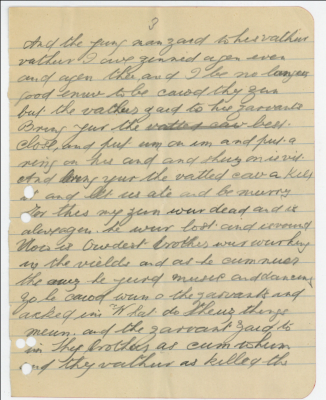 3
And the yung man zaid to hes vather
vather I ave zinned agen even
and agen thee and I be no longer
good enuw to be cawd thy zun
but the vather zaid to hes zarvants
Bring vur the vatted caw best
close, and put um on im and put a
ring on his and and shuz on is vit
And bring yur the vatted caw a kill
it and let us ate and be murry
For this my zun wur dead and is
alive agen he wur lost and is vound
Now is owdest brother wur wurking
in the vields and as he cum nuer
the ouze he yurd music and dancing
Zo he cawd wun o the zarvants and
asked im What do theuz things
meun. and the zarvant zaid to
im Thy brother as cum whum
and thy vather as killed the